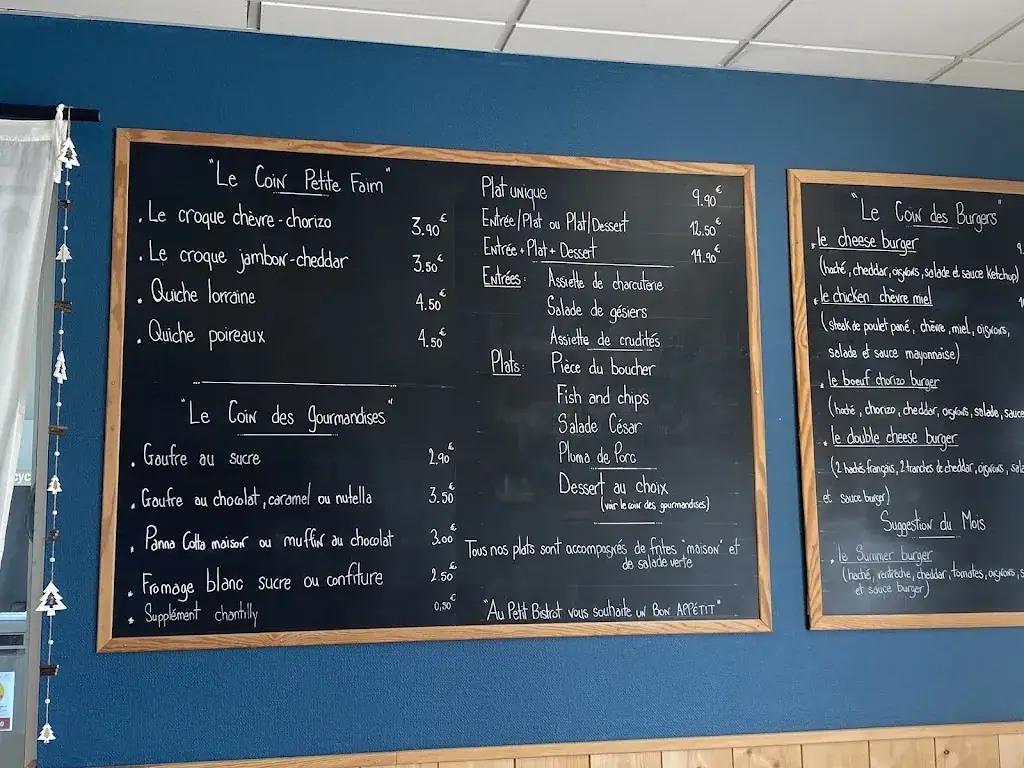 "Le Coin Petite Faim"
. Le croque chèvre-chorizo 3.90€
. Le croque jambon-cheddar 3.50€
. Quiche lorraine 4.50€
. Quiche poireaux 4.50€
"Le Coin des Gourmandises"
. Gaufre au sucre 2.90€
. Gaufre au chocolat, caramel ou nutella 3.50€
. Panna Cotta maison ou muffin au chocolat 3.00€
. Fromage blanc sucre ou confiture 2.50€
* Supplément chantilly 0,50€
Plat unique 9.90€
Entrée/Plat ou Plat/Dessert 12.50€
Entrée + Plat + Dessert 14.90€
Entrées: Assiette de charcuterie
Salade de gésiers
Assiette de crudités
Plats: Pièce du boucher
Fish and chips
Salade César
Pluma de Porc
Dessert au choix
(voir le coin des gourmandises)
Tous nos plats sont accompagnés de frites "maison" et
de salade verte
"Au Petit Bistrot vous souhaite un BON APPÉTIT"
"Le Coin des Burgers"
. le cheese burger
(haché, cheddar, oignons, salade et sauce ketchup)
. le chicken chèvre miel
(steak de poulet pané, chèvre, miel, oignons,
salade et sauce mayonnaise)
. le boeuf chorizo burger
(haché, chorizo, cheddar, oignons, salade, sauce
. le double cheese burger
(2 hachés français, 2 tranches de cheddar, oignons,
et sauce burger)
Suggestion du Mois
. le Summer burger
(haché, ventrèche, cheddar, tomates, oignons,
et sauce burger)